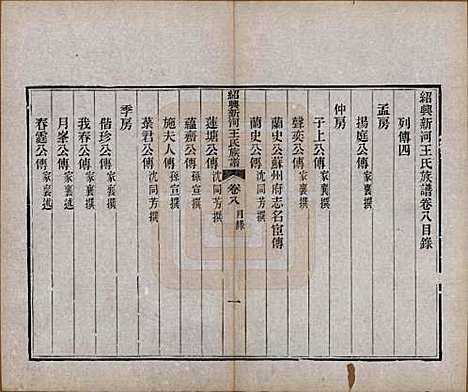 紹興新河王氏族譜卷八目錄
列傳四
孟房
揚庭公傳 家襄撰
仲房
子上公傳 家襄撰
聲奕公傳 家襄撰
蘭史公蘇州府志名宦傳
蘭史公傳 沈同芳撰
紹興新河王氏族譜 卷八 目錄 一
蓮塘公傳 沈同芳撰
蘊齋公傳 孫宣撰
施夫人傳 孫宣撰
葉君公傳 沈同芳撰
季房
偕珍公傳 家襄撰
我春公傳 家襄撰
月峯公傳 家襄述
春霆公傳 家襄述